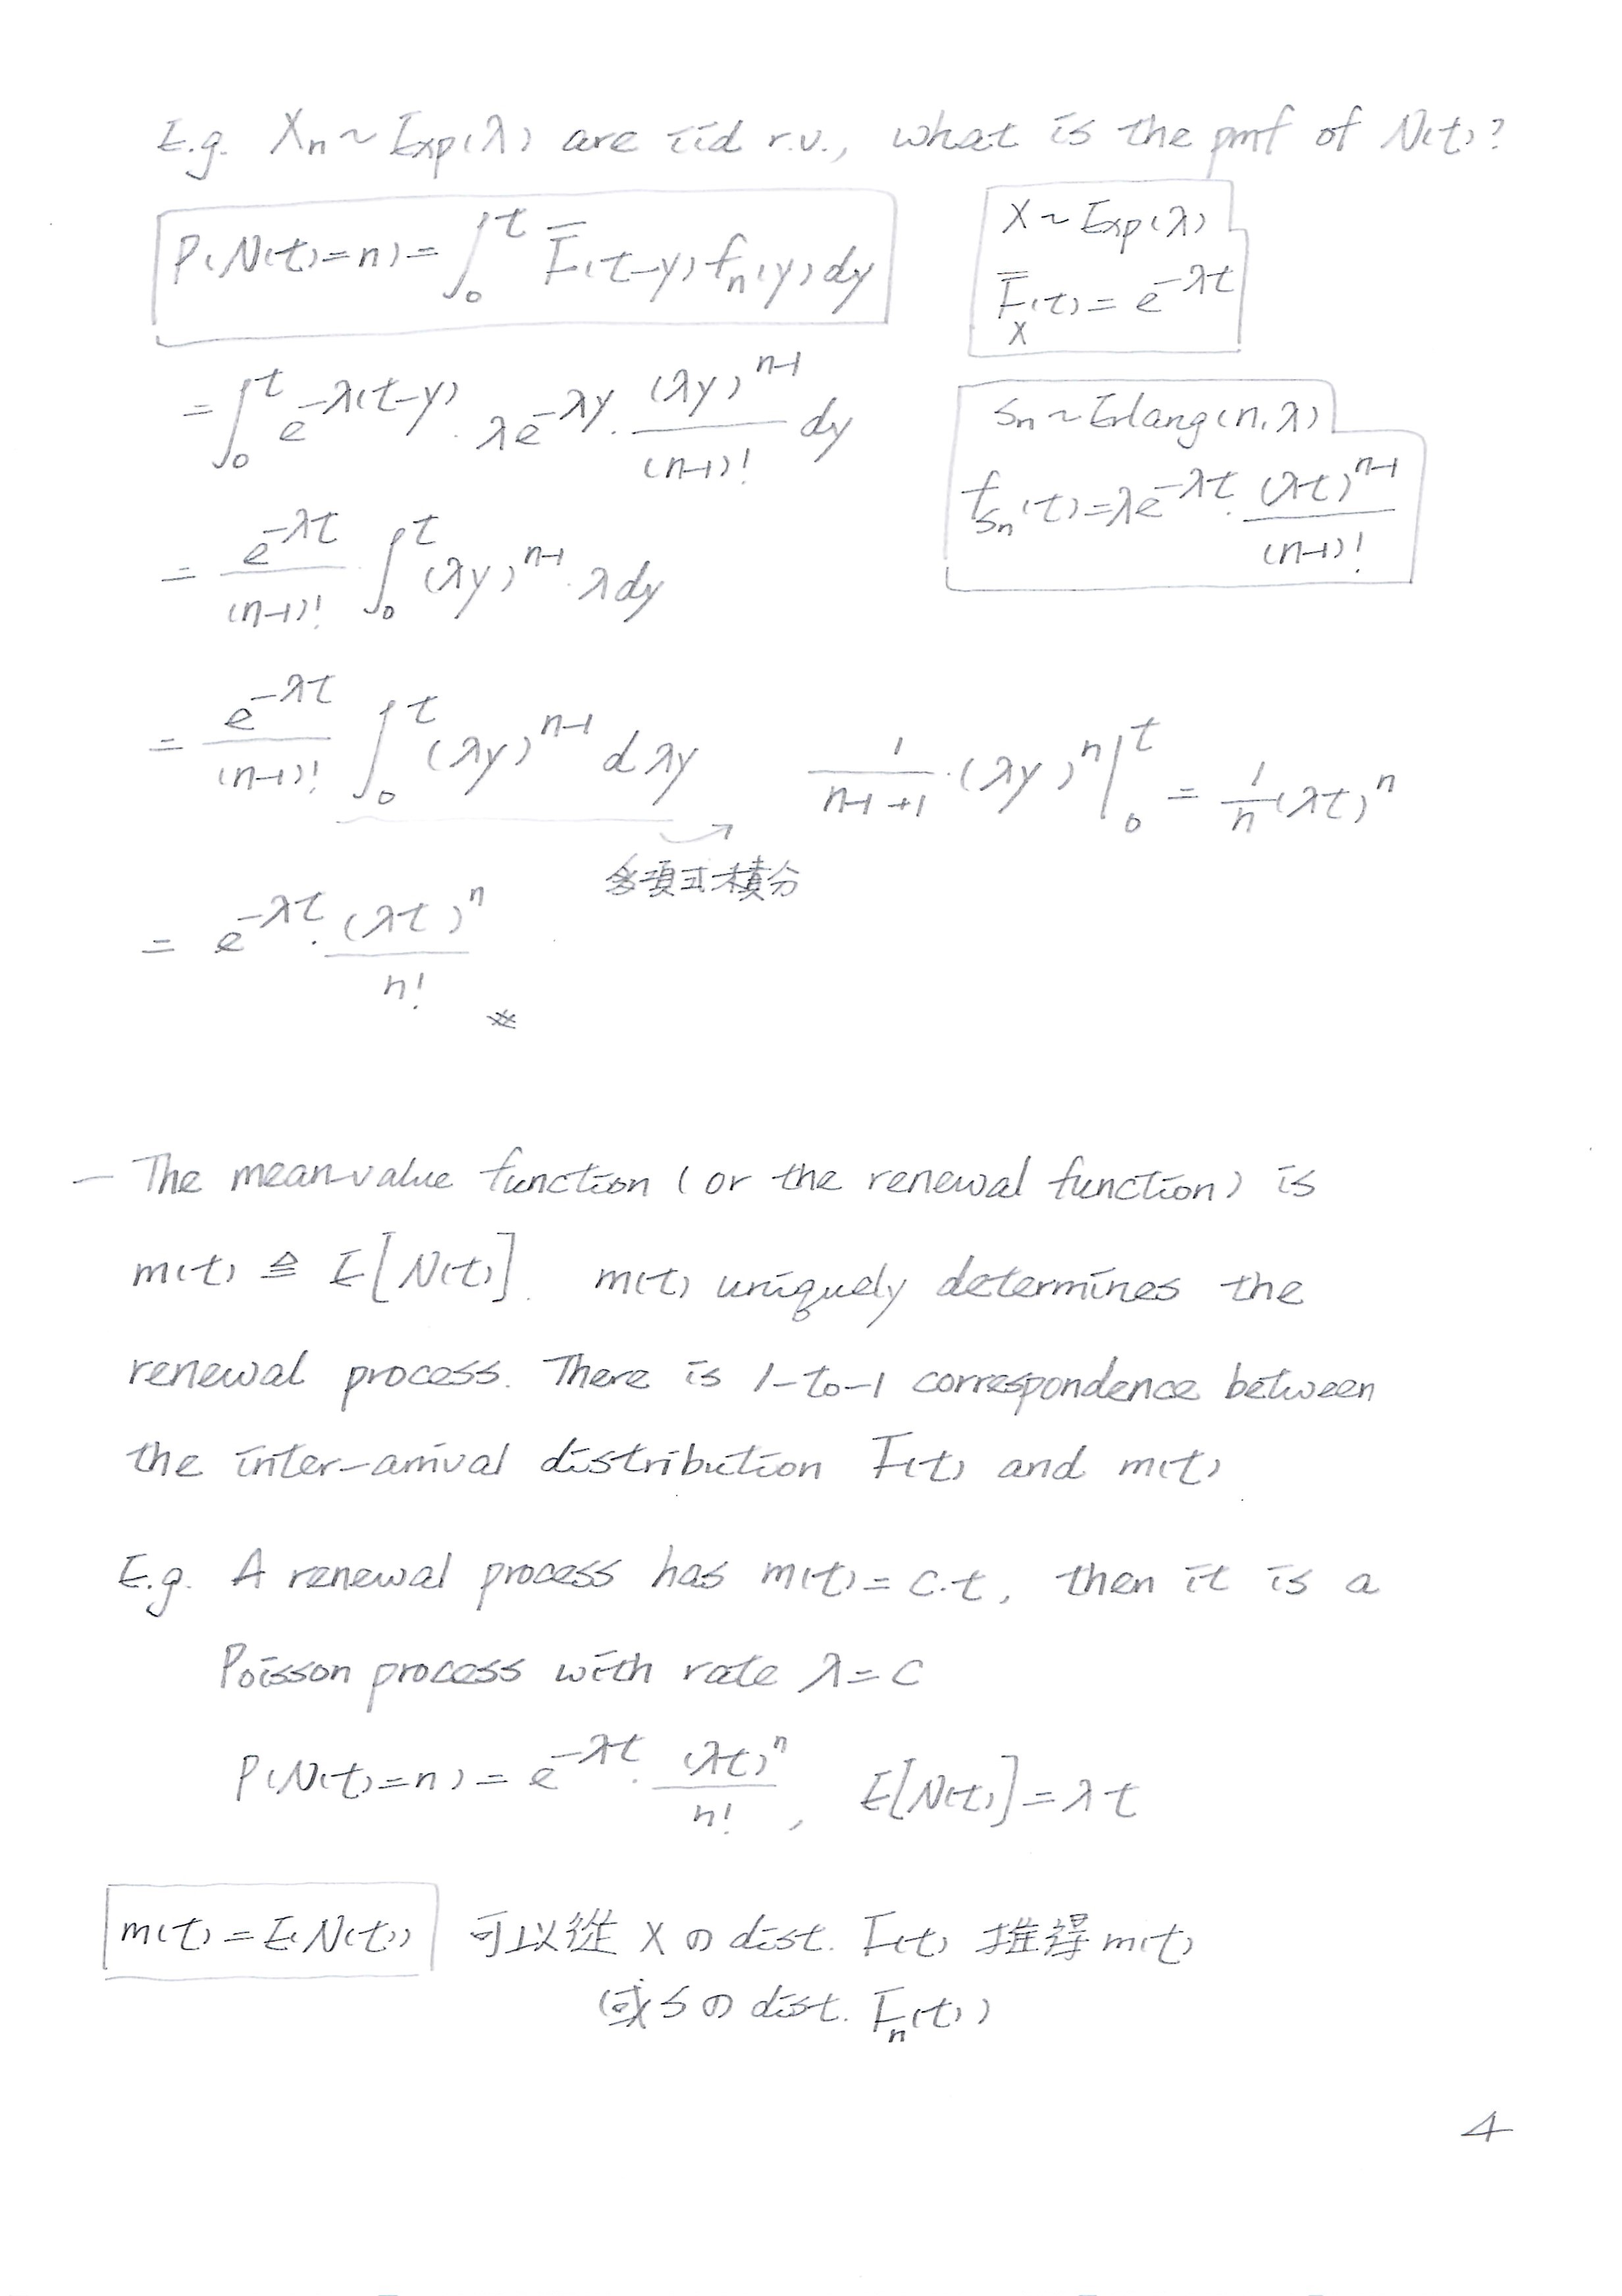 E.g. Xn ~ Exp(λ) are iid r.v., what is the pmf of N(t)?
P(N(t)=n) = ∫₀ᵗ F̄(t-y) fn(y) dy
X ~ Exp(λ)
F̄_X(t) = e^{-λt}
= ∫₀ᵗ e^{-λ(t-y)} · λe^{-λy} · (λy)^{n-1}/(n-1)! dy
Sn ~ Erlang(n, λ)
f_{Sn}(t) = λe^{-λt} · (λt)^{n-1}/(n-1)!
= e^{-λt}/(n-1)! ∫₀ᵗ (λy)^{n-1} · λdy
= e^{-λt}/(n-1)! ∫₀ᵗ (λy)^{n-1} dλy → 1/(n-1+1) · (λy)^n |₀ᵗ = 1/n (λt)^n
多項式積分
= e^{-λt} · (λt)^n/n! ※
— The mean-value function (or the renewal function) is
m(t) ≜ E[N(t)]. m(t) uniquely determines the
renewal process. There is 1-to-1 correspondence between
the inter-arrival distribution F(t) and m(t)
E.g. A renewal process has m(t) = c·t, then it is a
Poisson process with rate λ = c
P(N(t)=n) = e^{-λt} · (λt)^n/n! , E[N(t)] = λt
m(t) = E(N(t)) 可以從 X の dist. F(t) 推得 m(t)
(或 S の dist. Fn(t))
4